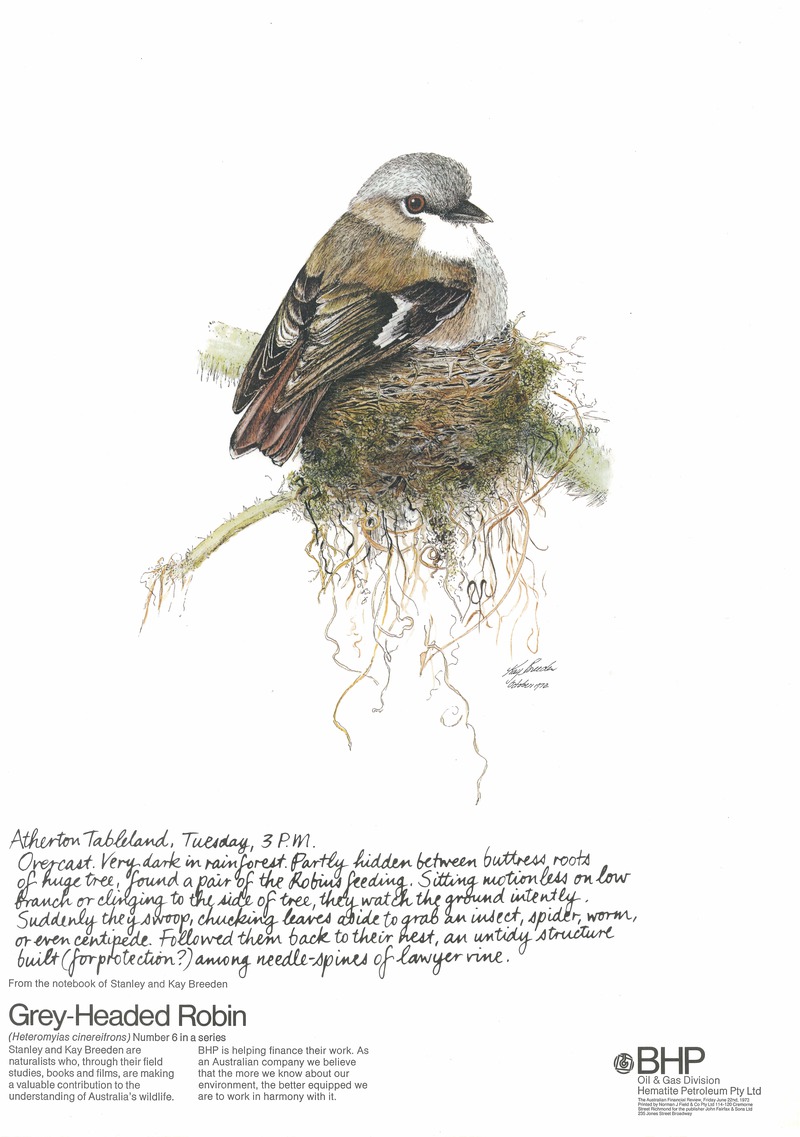 Kay Breeden
October 1972
Atherton Tableland, Tuesday, 3 P.M.
Overcast. Very dark in rainforest. Partly hidden between buttress roots
of huge tree, found a pair of the Robins feeding. Sitting motionless on low
branch or clinging to the side of tree, they watch the ground intently.
Suddenly they swoop, chucking leaves aside to grab an insect, spider, worm,
or even centipede. Followed them back to their nest, an untidy structure
built (for protection?) among needle-spines of lawyer vine.
From the notebook of Stanley and Kay Breeden
Grey-Headed Robin
(Heteromyias cinereifrons) Number 6 in a series
Stanley and Kay Breeden are
naturalists who, through their field
studies, books and films, are making
a valuable contribution to the
understanding of Australia's wildlife.
BHP is helping finance their work. As
an Australian company we believe
that the more we know about our
environment, the better equipped we
are to work in harmony with it.
BHP
Oil & Gas Division
Hematite Petroleum Pty Ltd
The Australian Financial Review, Friday June 22nd, 1973
Printed by Norman J Field & Co Pty Ltd 114-120 Cremorne
Street Richmond for the publisher John Fairfax & Sons Ltd
235 Jones Street Broadway